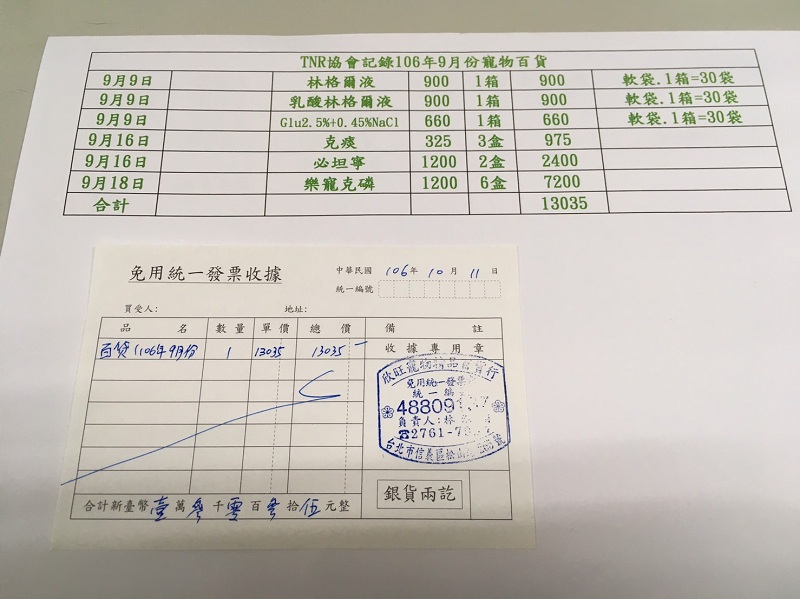 TNR協會記錄106年9月份寵物百貨
9月9日 林格爾液 900 1箱 900 軟袋.1箱=30袋
9月9日 乳酸林格爾液 900 1箱 900 軟袋.1箱=30袋
9月9日 Glu2.5%+0.45%NaCl 660 1箱 660 軟袋.1箱=30袋
9月16日 克痰 325 3盒 975
9月16日 必坦寧 1200 2盒 2400
9月18日 樂寵克磷 1200 6盒 7200
合計 13035
免用統一發票收據
中華民國 106年 10月 11日
統一編號
買受人: 地址:
品名 數量 單價 總價 備註
百貨(106年9月份 1 13035 13035 收據專用章
欣旺寵物精品百貨行
免用統一發票
統一編
48809
負責人:林
☎2761-7
台北市信義區松山
合計新臺幣壹萬參千零百參拾伍元整
銀貨兩訖